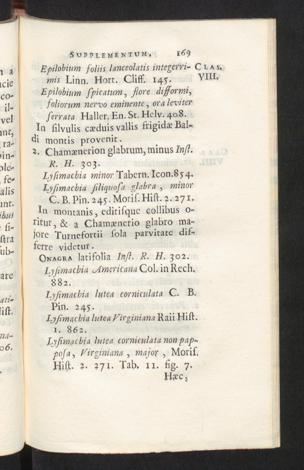 SUPPLEMENTUM. 169
Epilobium foliis lanceolatis integerri- CLAS.
mis Linn. Hort. Cliff. 145. VIII.
Epilobium spicatum, flore difformi,
foliorum nervo eminente, ora leviter
serrata Haller. En. St. Helv. 408.
In silvulis cæduis vallis frigidæ Bal-
di montis provenit.
2. Chamænerion glabrum, minus Inst.
R. H. 303.
Lysimachia minor Tabern. Icon. 854.
Lysimachia siliquosa glabra, minor
C. B. Pin. 245. Moris. Hist. 2. 271.
In montanis, editisque collibus o-
ritur, & a Chamænerio glabro ma-
jore Turnefortii sola parvitate dif-
ferre videtur.
ONAGRA latifolia Inst. R. H. 302.
Lysimachia Americana Col. in Rech.
882.
Lysimachia lutea corniculata C. B.
Pin. 245.
Lysimachia lutea Virginiana Raii Hist.
1. 862.
Lysimachia lutea corniculata non pap-
posa, Virginiana, major, Moris.
Hist. 2. 271. Tab. 11. fig. 7.
Hæc,